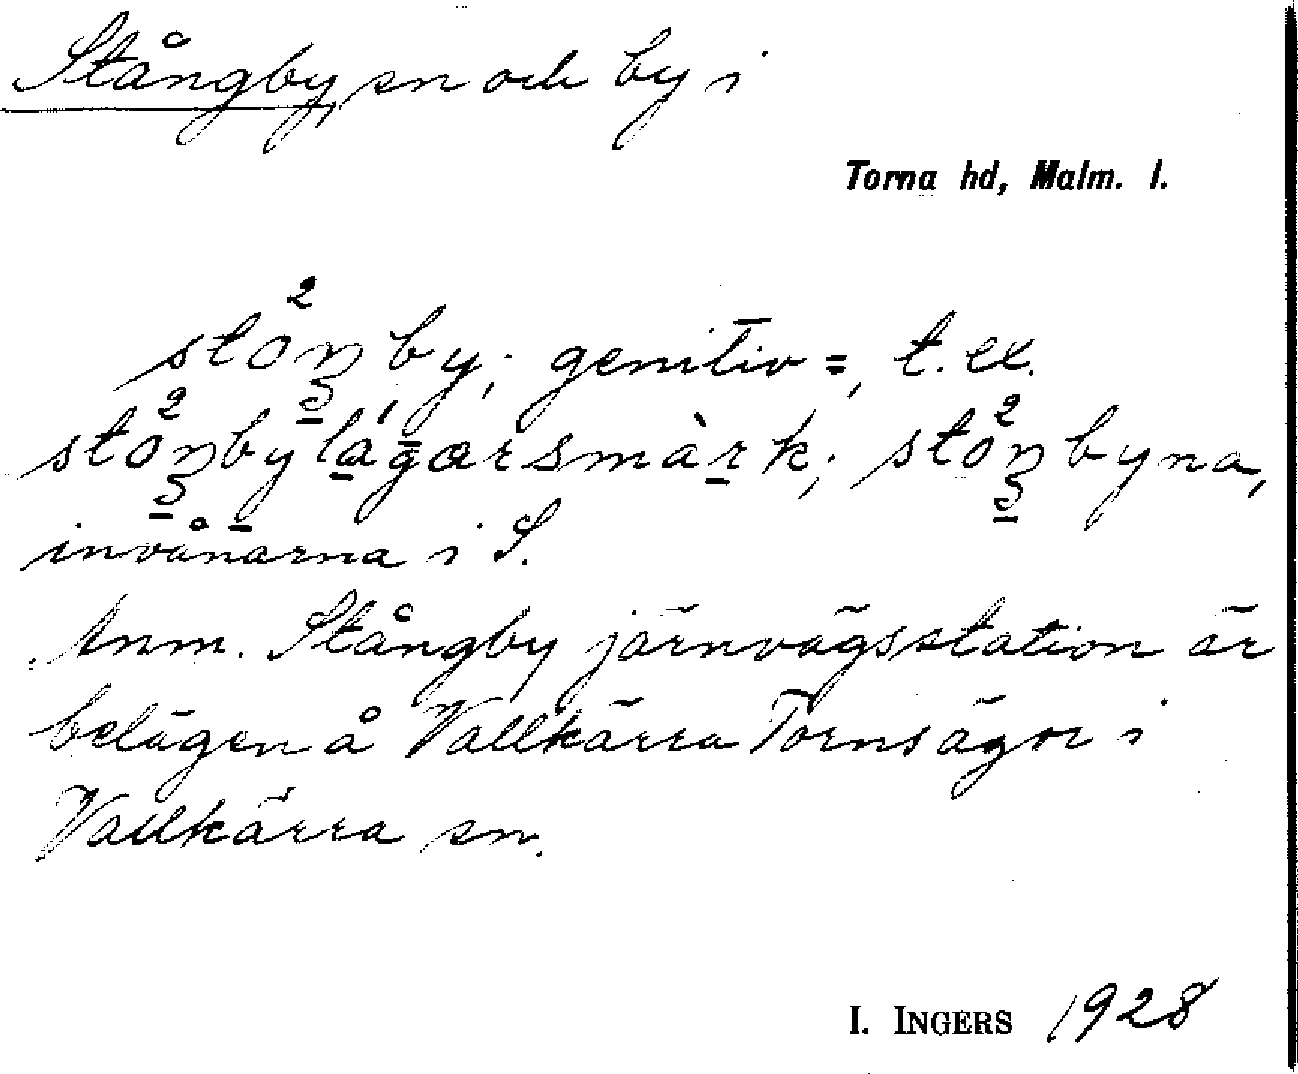 Stångby, sn och by i
Torna hd, Malm. l.
stoŋ²by; genitiv =, t. ex.
invånarna i S.
Anm. Stångby järnvägsstation är
belägen å Vallkärra Tornsägor i
Vallkärra sn.
I. INGERS 1928